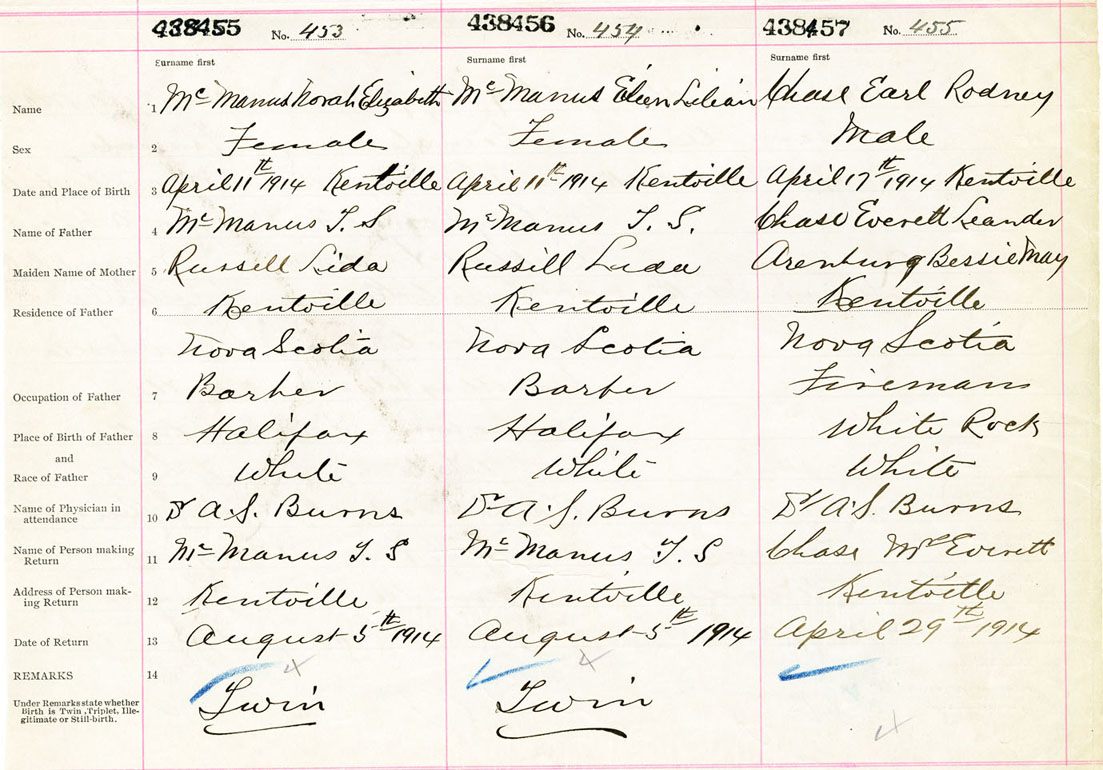 438455 No. 453 438456 No. 454 438457 No. 455
Surname first Surname first Surname first
Name 1 Mc Manus Norah Elizabeth Mc Manus Eileen Lilian Chase Earl Rodney
Sex 2 Female Female Male
Date and Place of Birth 3 April 11th 1914 Kentville April 11th 1914 Kentville April 17th 1914 Kentville
Name of Father 4 Mc Manus T. S Mc Manus T. S. Chase Everett Leander
Maiden Name of Mother 5 Russell Lida Russill Lida Arenburg Bessie May
Residence of Father 6 Kentville Kentville Kentville
Nova Scotia Nova Scotia Nova Scotia
Occupation of Father 7 Barber Barber Fireman
Place of Birth of Father 8 Halifax Halifax White Rock
and
Race of Father 9 White White White
Name of Physician in
attendance 10 Dr A. S. Burns Dr A. S. Burns Dr A. S. Burns
Name of Person making
Return 11 Mc Manus T. S Mc Manus T. S Chase Everett
Address of Person mak-
ing Return 12 Kentville Kentville Kentville
Date of Return 13 August 5th 1914 August 5th 1914 April 29th 1914
REMARKS 14
Under Remarks state whether
Birth is Twin, Triplet, Ille-
gitimate or Still-birth.
Twin Twin